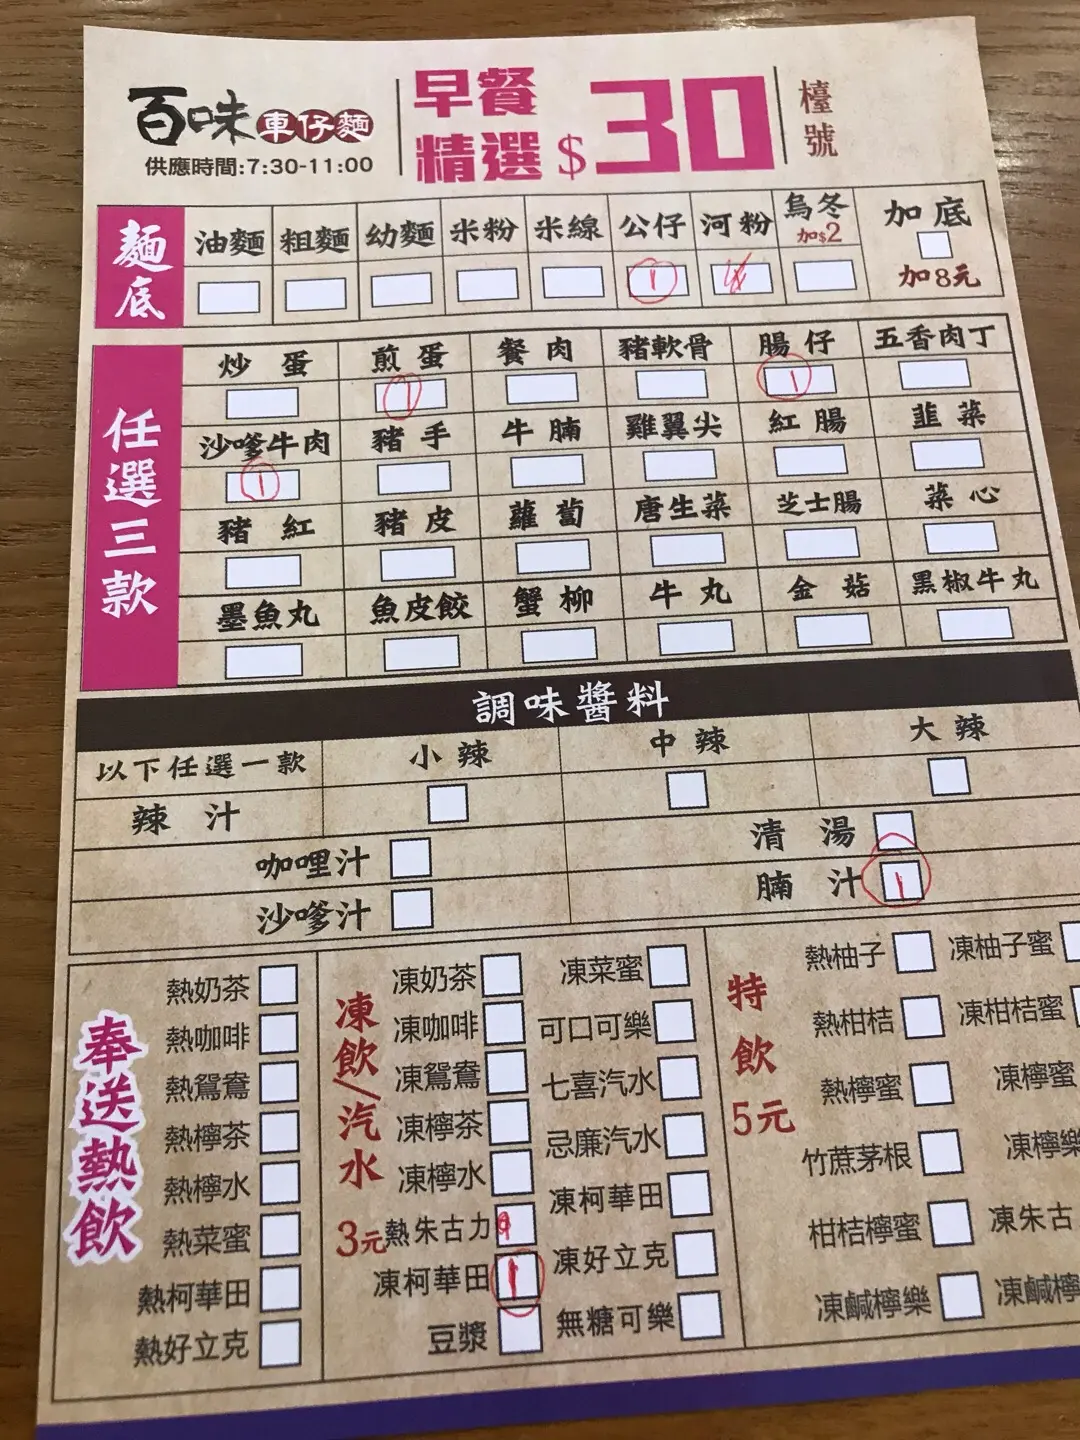 百味車仔麵
供應時間:7:30-11:00
早餐
精選 $30
檯號
麵底
油麵 粗麵 幼麵 米粉 米線 公仔 河粉 烏冬 加$2 加底
加8元
1
任選三款
炒蛋 煎蛋 餐肉 豬軟骨 腸仔 五香肉丁
1 1
沙嗲牛肉 豬手 牛腩 雞翼尖 紅腸 韭菜
1
豬紅 豬皮 蘿蔔 唐生菜 芝士腸 菜心
墨魚丸 魚皮餃 蟹柳 牛丸 金菇 黑椒牛丸
調味醬料
以下任選一款 小辣 中辣 大辣
辣汁
咖哩汁 清湯
沙嗲汁 腩汁 1
奉送熱飲
熱奶茶
熱咖啡
熱鴛鴦
熱檸茶
熱檸水
熱菜蜜
熱柯華田
熱好立克
凍飲/汽水
3元
凍奶茶
凍咖啡
凍鴛鴦
凍檸茶
凍檸水
熱朱古力
凍柯華田 1
豆漿
凍菜蜜
可口可樂
七喜汽水
忌廉汽水
凍柯華田
凍好立克
無糖可樂
特飲
5元
熱柚子
熱柑桔
熱檸蜜
竹蔗茅根
柑桔檸蜜
凍鹹檸樂
凍柚子蜜
凍柑桔蜜
凍檸蜜
凍檸樂
凍朱古
凍鹹檸